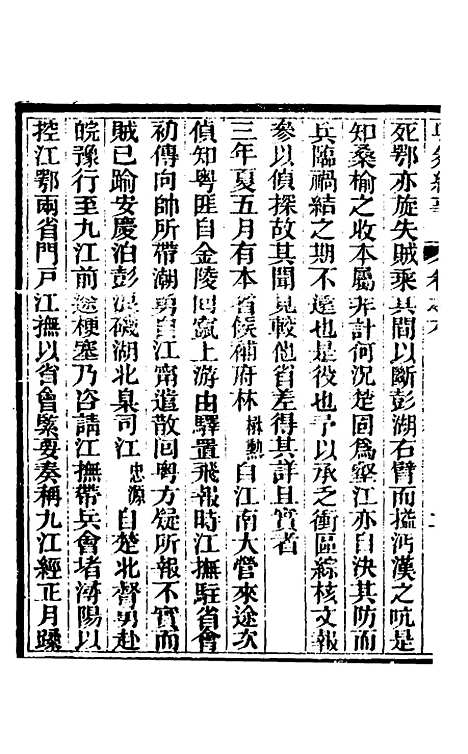 死鄂亦旋失賊乘其間以斷彭湖右臂而搤沔漢之吭是
知桑榆之收本屬非計何況楚固爲壑江亦自決其防而
兵臨禍結之期不遠也是役也予以承之衝區綜核文報
參以偵探故其聞見較他省差得其詳且實者
三年夏五月有本省候補府林自江南大營來途次
偵知粵匪自金陵回竄上游由驛置飛報時江撫駐省會
初傳向帥所帶潮勇自江甯遣散囘粵方疑所報不實而
賊已踰安慶泊彭澤磯湖北臬司江忠源自楚北督勇赴
皖豫行至九江前途梗塞乃咨請江撫帶兵會堵潯陽以
控江鄂兩省門戸江撫以省會緊要奏稱九江經正月蹂